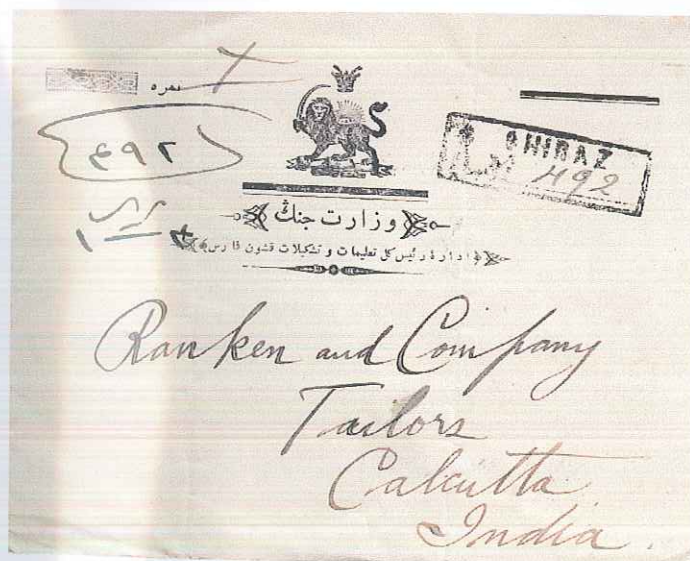 نمره
۴۹۲
SHIRAZ
492
وزارت جنگ
اداره رئیس کل تعلیمات و تشکیلات قشون فارس
Ranken and Company
Tailors
Calcutta
India.